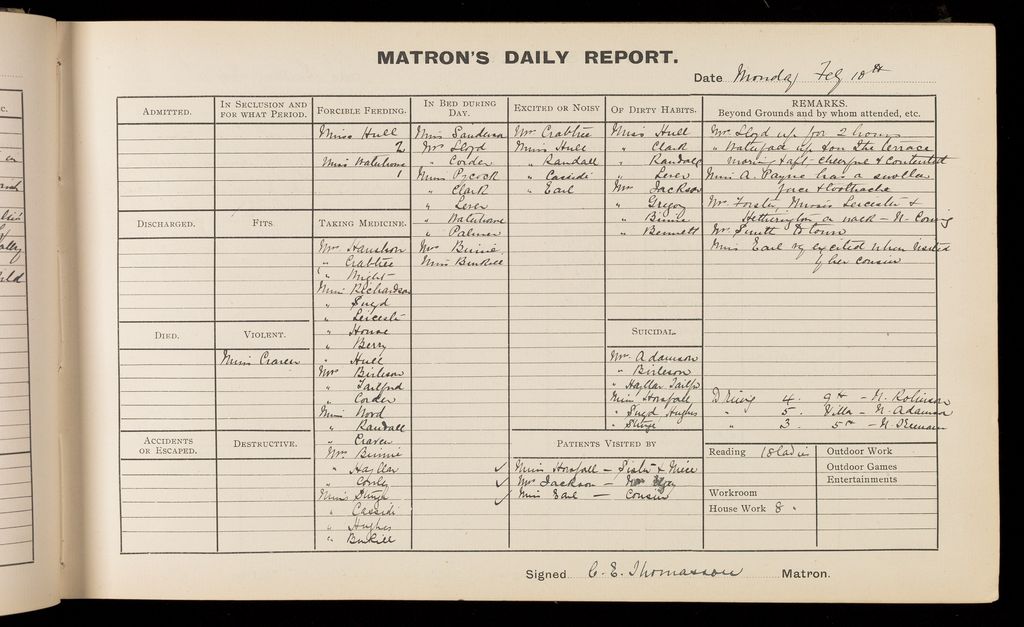 MATRON'S DAILY REPORT.
Date Monday Feb 10th
ADMITTED.
IN SECLUSION AND FOR WHAT PERIOD.
FORCIBLE FEEDING.
IN BED DURING DAY.
EXCITED OR NOISY
OF DIRTY HABITS.
REMARKS.
Beyond Grounds and by whom attended, etc.
Miss Hull
2
Miss Waterhouse
1
Miss Sanderson
Mrs Lloyd
" Corder
Miss Pocock
" Clark
" Lever
" Waterhouse
" Palmer
Mrs Binnie
Miss Binkell
Mrs Crabtree
Miss Hull
" Randall
" Cassidi
" Earl
Miss Hull
" Clark
" Randall
" Lever
Mrs Jackson
" Gregory
" Binnie
" Bennett
Mrs Lloyd up for 2 hours
up & on the terrace
morning & aft. cheerful & contented
Miss A. Payne has a swollen
face & toothache
Mrs Forster, Misses Leicester &
Hetherington a walk - N.
Mrs Smith to town
Miss Earl vy excited when visited
by her cousin
DISCHARGED.
FITS
TAKING MEDICINE.
" Crabtree
" Wright
Miss Richardson
" Lloyd
" Leicester
" House
" Berry
" Hull
Mrs Birleson
" Tailford
" Corder
Miss Nord
" Randall
" Craven
Mrs Binnie
" Hayllar
" Corley
Miss
" Cassidi
" Hughes
" Binkell
DIED.
VIOLENT.
Miss Craven
SUICIDAL.
Mrs Adamson
" Birleson
" Hayllar Tailfd
Miss Horsfall
" Lloyd Hughes
"
Driving 4. 9th - N. Robinson
" 5. Villa - N. Adamson
" 3. 5th - N.
ACCIDENTS OR ESCAPED.
DESTRUCTIVE.
PATIENTS VISITED BY
✓ Miss Horsfall - Sister & Niece
✓ Mrs Jackson -
✓ Miss Earl - Cousin
Reading 18 ladies
Outdoor Work
Outdoor Games
Entertainments
Workroom
House Work 8 "
Signed C. E. Thomasson Matron.